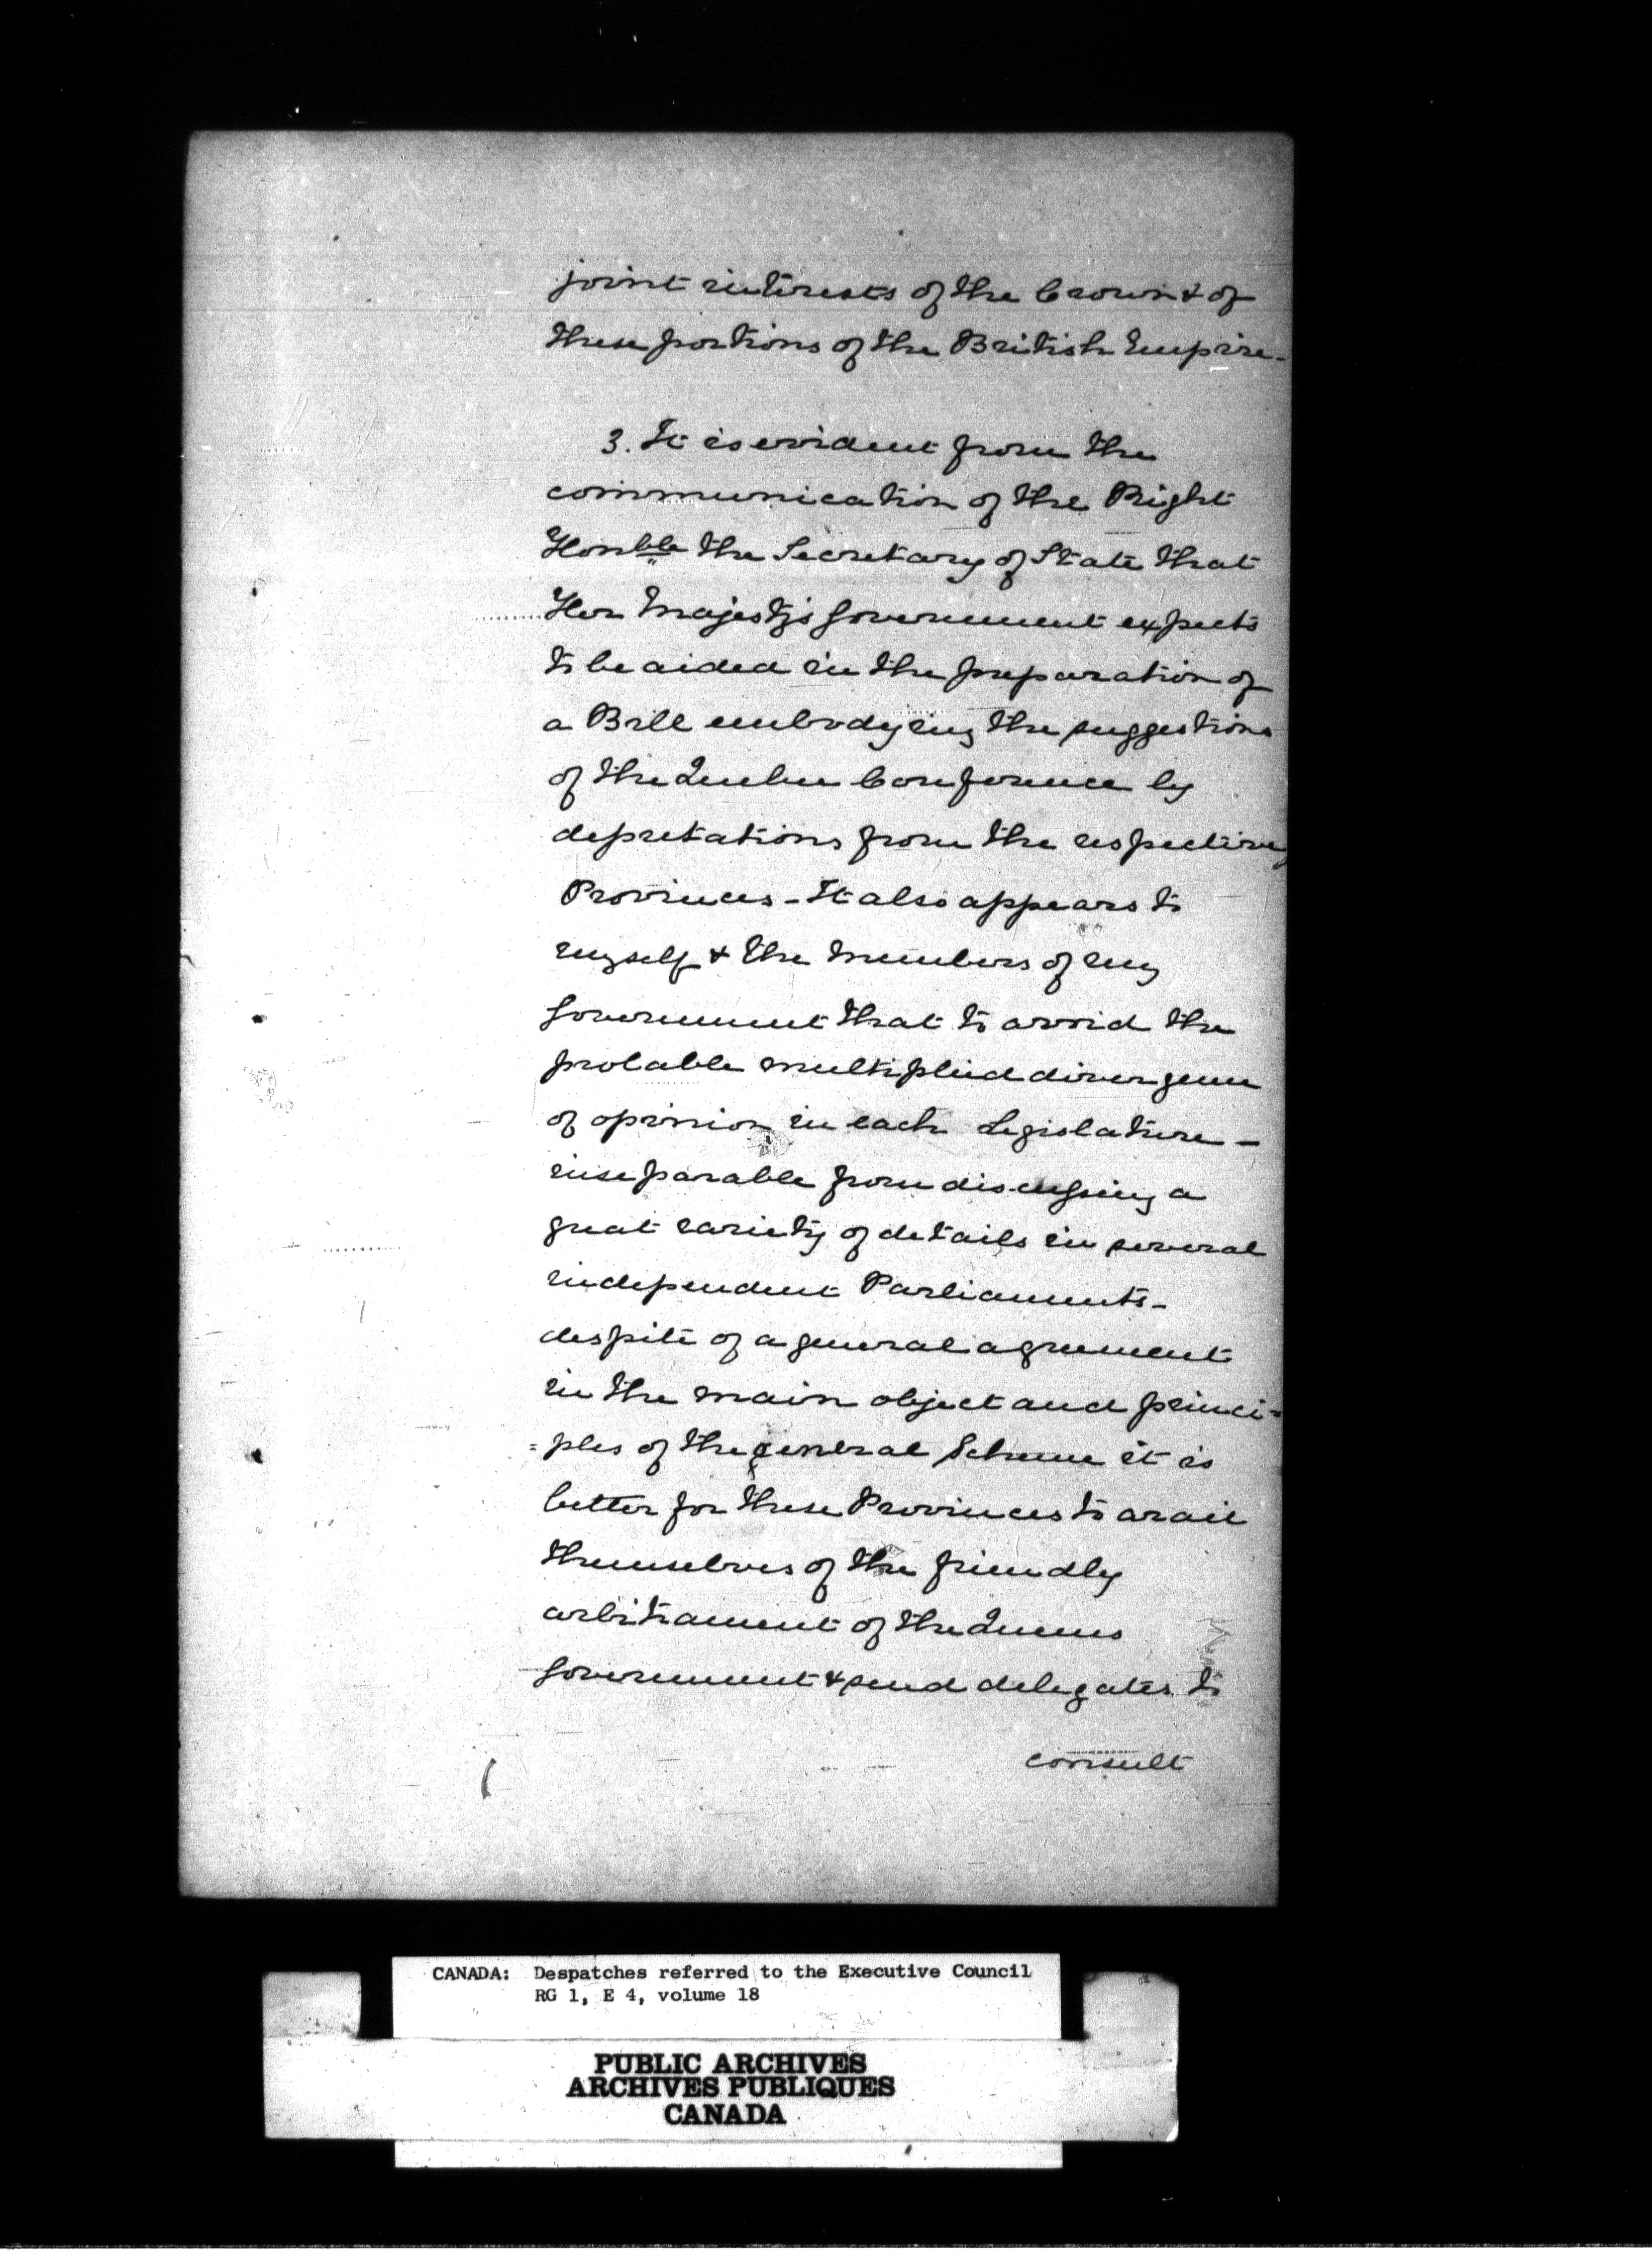 joint interests of the Crown & of
these portions of the British Empire -
3. It is evident from the
communication of the Right
Honble the Secretary of State that
Her Majesty's Government expects
to be aided in the preparation of
a Bill embodying the suggestions
of the Quebec Conference by
deputations from the respective
Provinces - It also appears to
myself & the Members of my
Government that to avoid the
probable multiplied divergence
of opinion in each Legislature -
inseparable from discussing a
great variety of details in several
independent Parliaments -
despite of a general agreement
in the main object and princi=
=ples of the general Scheme it is
better for these Provinces to avail
themselves of the friendly
arbitrament of the Queens
Government & send delegates to
consult
CANADA: Despatches referred to the Executive Council
RG 1, E 4, volume 18
PUBLIC ARCHIVES
ARCHIVES PUBLIQUES
CANADA